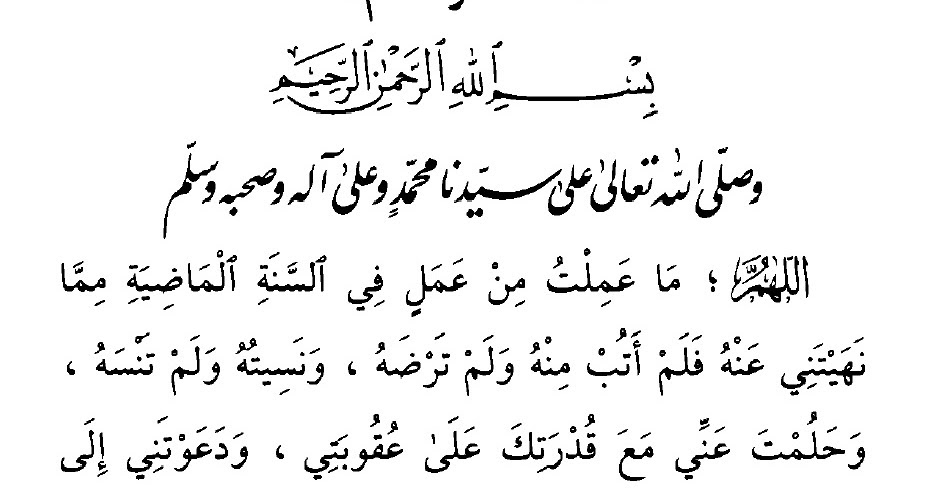 بِسْمِ ٱللهِ ٱلرَّحْمٰنِ ٱلرَّحِيْمِ
وصلّى الله تعالىٰ علىٰ سيّدنا محمّدٍ وعلىٰ آله وصحبه وسلّم
اللّٰهُمَّ ؛ مَا عَمِلْتُ مِنْ عَمَلٍ فِي ٱلسَّنَةِ ٱلْمَاضِيَةِ مِمَّا
نَهَيْتَنِي عَنْهُ فَلَمْ أَتُبْ مِنْهُ وَلَمْ تَرْضَهُ ، وَنَسِيتُهُ وَلَمْ تَنْسَهُ ،
وَحَلُمْتَ عَنِّي مَعَ قُدْرَتِكَ عَلَىٰ عُقُوبَتِي ، وَدَعَوْتَنِي إِلَى